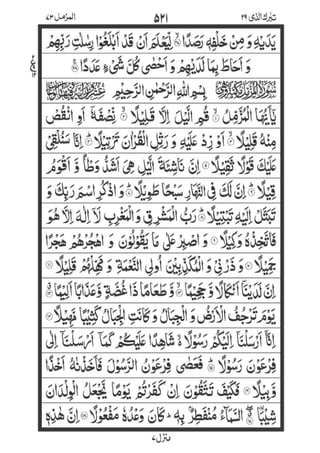 تبٰرك الذی ٢٩ ٥٢١ المزمل ٧٣
يَدَيْهِ وَمِنْ خَلْفِهٖ رَصَدًا ۙ﴿٢٧﴾ لِّيَعْلَمَ اَنْ قَدْ اَبْلَغُوْا رِسٰلٰتِ رَبِّهِمْ
وَاَحَاطَ بِمَا لَدَيْهِمْ وَاَحْصٰى كُلَّ شَىْءٍ عَدَدًا ﴿٢٨﴾
بِسْمِ اللّٰهِ الرَّحْمٰنِ الرَّحِيْمِ
يٰۤاَيُّهَا الْمُزَّمِّلُ ۙ﴿١﴾ قُمِ الَّيْلَ اِلَّا قَلِيْلًا ۙ﴿٢﴾ نِّصْفَهٗۤ اَوِ انْقُصْ
مِنْهُ قَلِيْلًا ۙ﴿٣﴾ اَوْ زِدْ عَلَيْهِ وَرَتِّلِ الْقُرْاٰنَ تَرْتِيْلًا ؕ﴿٤﴾ اِنَّا سَنُلْقِىْ
عَلَيْكَ قَوْلًا ثَقِيْلًا ﴿٥﴾ اِنَّ نَاشِئَةَ الَّيْلِ هِىَ اَشَدُّ وَطْاً وَّاَقْوَمُ
قِيْلًا ؕ﴿٦﴾ اِنَّ لَكَ فِى النَّهَارِ سَبْحًا طَوِيْلًا ؕ﴿٧﴾ وَاذْكُرِ اسْمَ رَبِّكَ وَ
تَبَتَّلْ اِلَيْهِ تَبْتِيْلًا ؕ﴿٨﴾ رَبُّ الْمَشْرِقِ وَالْمَغْرِبِ لَاۤ اِلٰهَ اِلَّا هُوَ
فَاتَّخِذْهُ وَكِيْلًا ﴿٩﴾ وَاصْبِرْ عَلٰى مَا يَقُوْلُوْنَ وَاهْجُرْهُمْ هَجْرًا
جَمِيْلًا ﴿١٠﴾ وَذَرْنِىْ وَالْمُكَذِّبِيْنَ اُولِى النَّعْمَةِ وَمَهِّلْهُمْ قَلِيْلًا ﴿١١﴾
اِنَّ لَدَيْنَاۤ اَنْكَالًا وَّجَحِيْمًا ۙ﴿١٢﴾ وَّطَعَامًا ذَا غُصَّةٍ وَّعَذَابًا اَلِيْمًا ﴿١٣﴾
يَوْمَ تَرْجُفُ الْاَرْضُ وَالْجِبَالُ وَكَانَتِ الْجِبَالُ كَثِيْبًا مَّهِيْلًا ﴿١٤﴾
اِنَّاۤ اَرْسَلْنَاۤ اِلَيْكُمْ رَسُوْلًا شَاهِدًا عَلَيْكُمْ كَمَاۤ اَرْسَلْنَاۤ اِلٰى
فِرْعَوْنَ رَسُوْلًا ﴿١٥﴾ فَعَصٰى فِرْعَوْنُ الرَّسُوْلَ فَاَخَذْنٰهُ اَخْذًا
وَّبِيْلًا ﴿١٦﴾ فَكَيْفَ تَتَّقُوْنَ اِنْ كَفَرْتُمْ يَوْمًا يَّجْعَلُ الْوِلْدَانَ
شِيْبَاۨ ﴿١٧﴾ السَّمَآءُ مُنْفَطِرٌۢ بِهٖ كَانَ وَعْدُهٗ مَفْعُوْلًا ﴿١٨﴾ اِنَّ هٰذِهٖ
منزل ٧